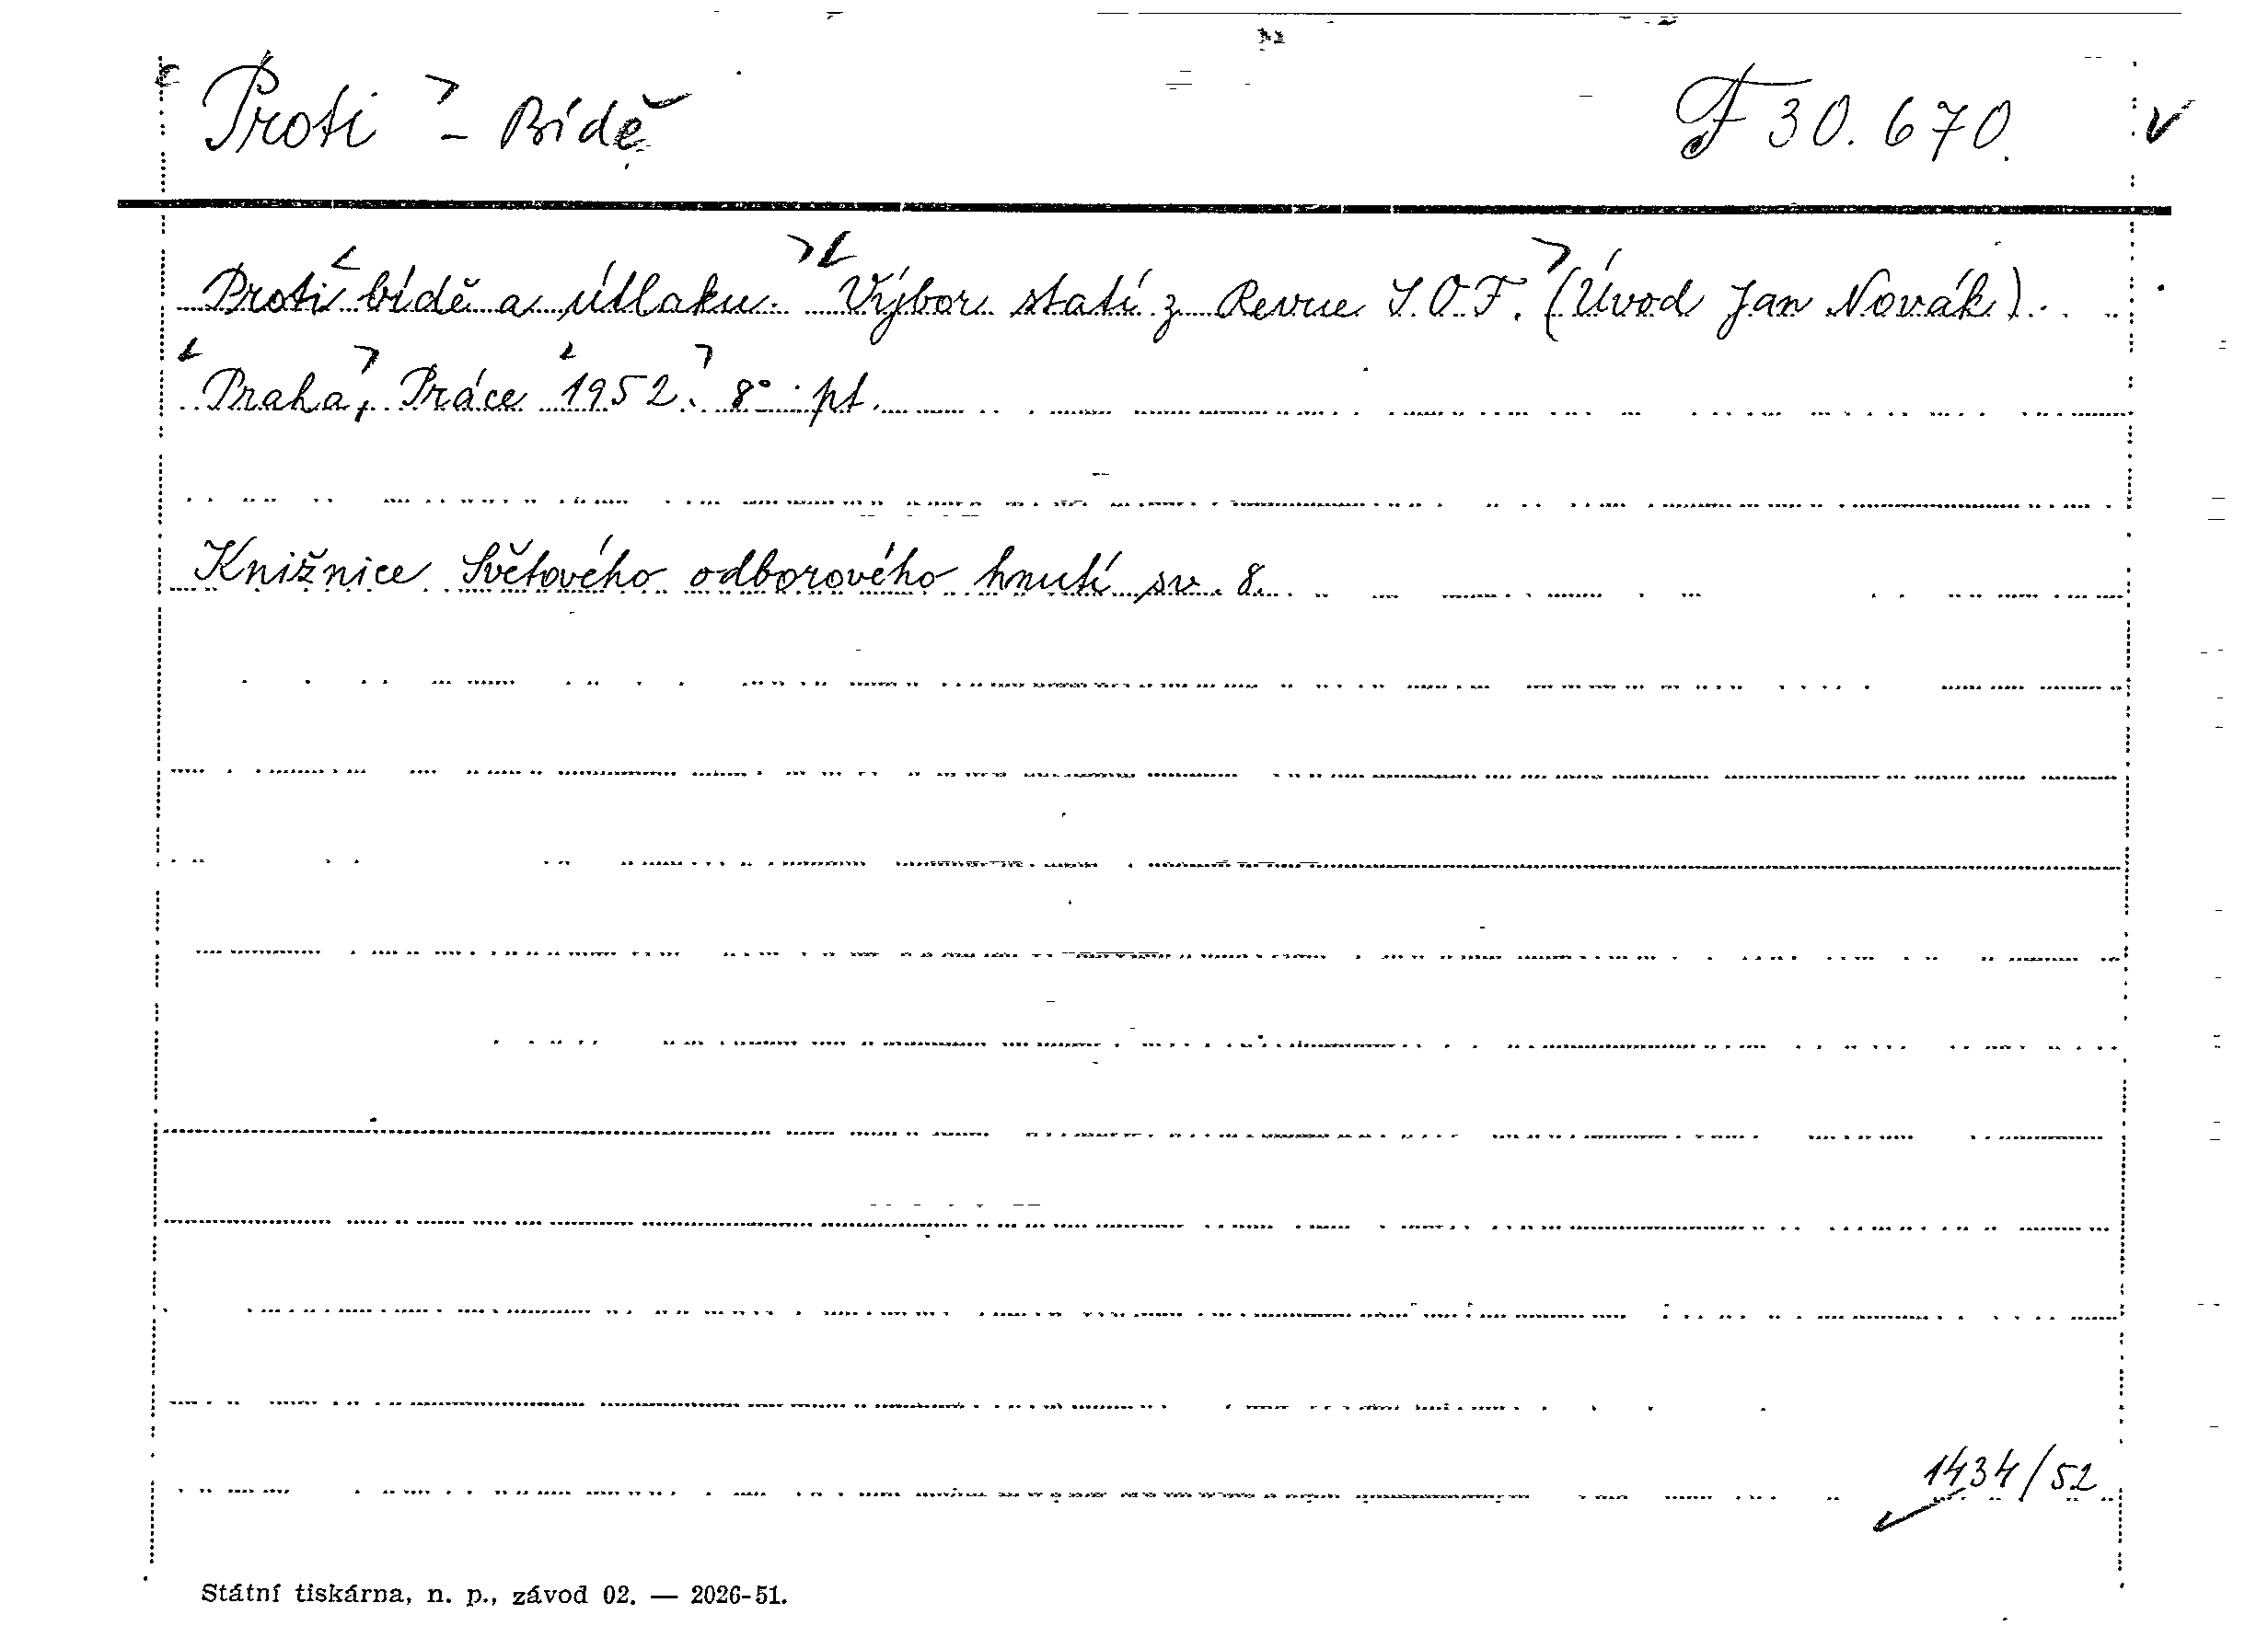 Proti - Bídě F 30.670.
Proti bídě a útlaku. Výbor statí z Revue S.O.F. (Úvod Jan Novák).
Praha, Práce 1952. 8° pt.
Knižnice Světového odborového hnutí sv. 8.
1434/52
Státní tiskárna, n. p., závod 02. — 2026-51.